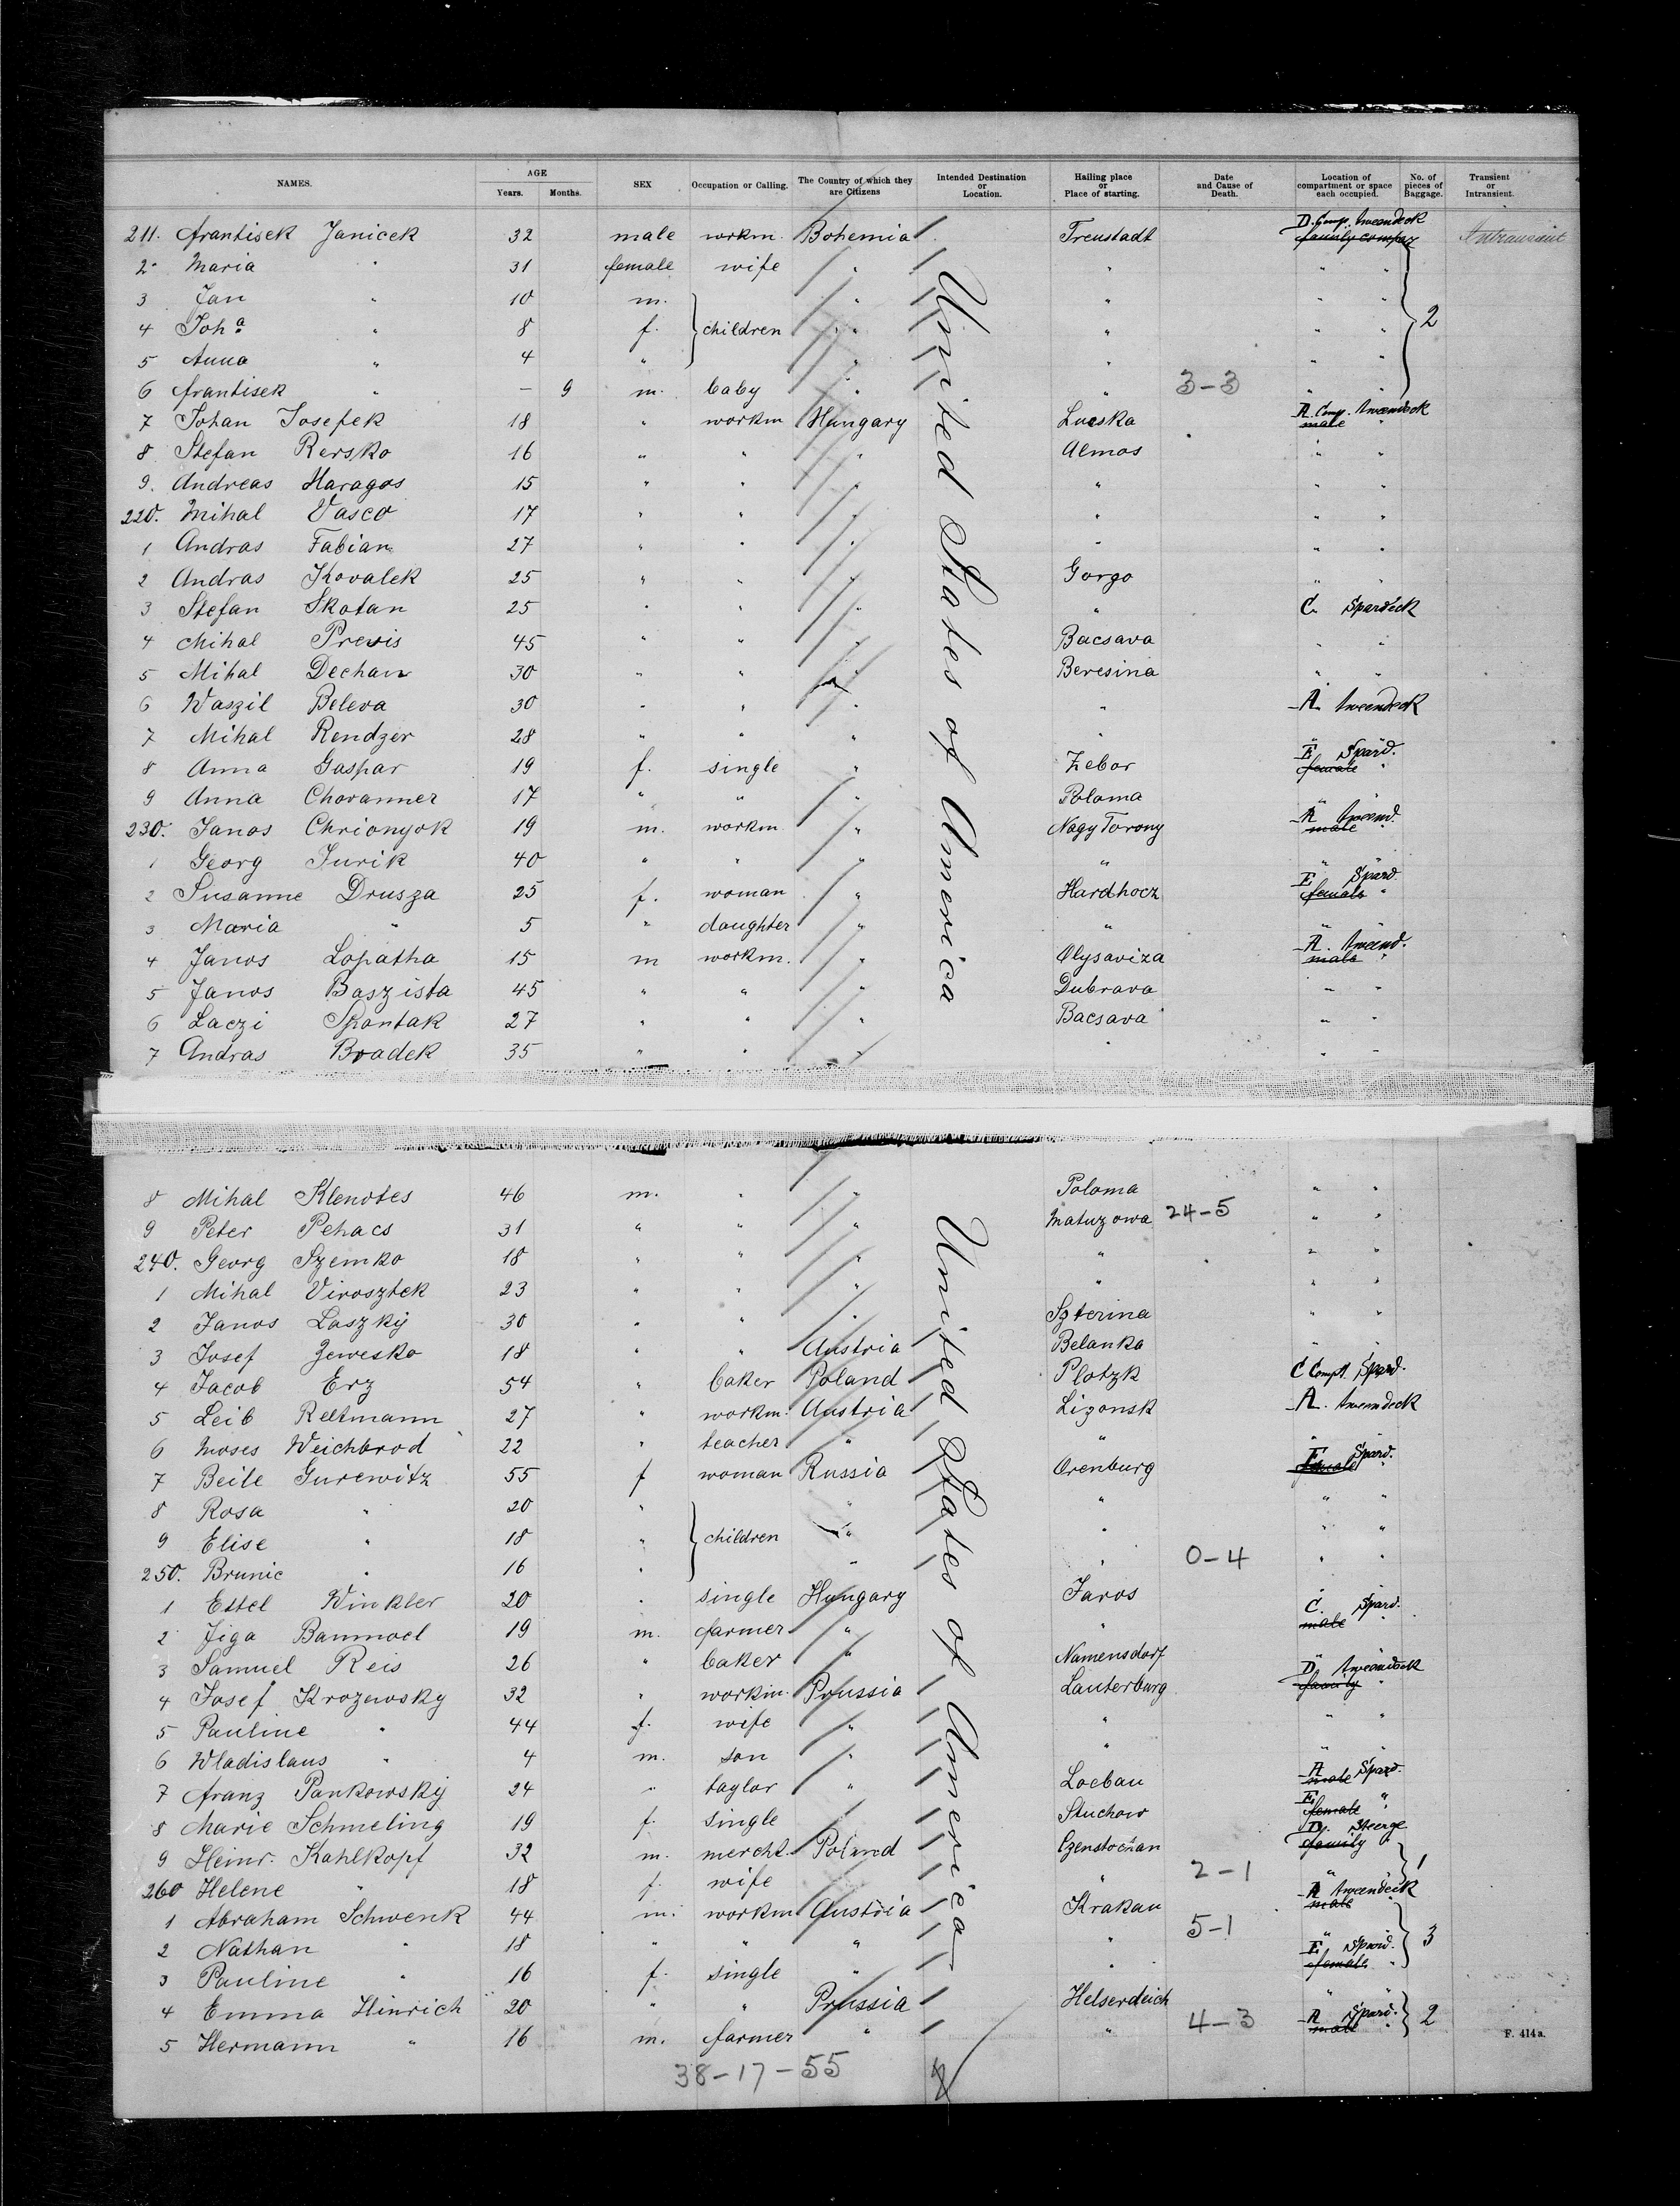 NAMES. AGE Years. Months. SEX Occupation or Calling. The Country of which they are Citizens Intended Destination or Location. Hailing place or Place of starting. Date and Cause of Death. Location of compartment or space each occupied. No. of pieces of Baggage. Transient or Intransient.
211. Frantisek Janicek 32 male workm. Bohemia Freustadt D. Comp. tweendeck
2 Maria " 31 female wife " " " "
3 Jan " 10 m. " " " "
4 Joha " 8 f. children " " " " 2
5 Anna " 4 " " " " "
6 Frantisek " – 9 m. baby " " 3-3 " "
7 Johan Josefek 18 " workm Hungary Lucska A. Comp. tweendeck male "
8 Stefan Rersko 16 " " " Almos " "
9. Andreas Haragos 15 " " " " " "
220. Mihal Vasco 17 " " " " " "
1 Andras Fabian 27 " " " " " "
2 Andras Kovalek 25 " " " Gorgo " "
3 Stefan Skotan 25 " " " " C. Spardeck
4 Mihal Previs 45 " " " Bacsava " "
5 Mihal Dechan 30 " " " Beresina " "
6 Waszil Beleva 30 " " " " A. tweendeck
7 Mihal Rendzer 28 " " " " " "
8 Anna Gaspar 19 f. single " Zebor E Spard. female "
9 Anna Chovanner 17 " " " Poloma " "
230. Janos Chrionyok 19 m. workm " Nagy Torony A tweend. male "
1 Georg Jurik 40 " " " " " "
2 Susanne Drusza 25 f. woman " Hardhocz E Spard. female "
3 Maria " 5 " daughter " " " "
4 Janos Lopatha 15 m workm. " Olysaviza A. tweend. male "
5 Janos Baszista 45 " " " Dubrava " "
6 Laczi Spontak 27 " " " Bacsava " "
7 Andras Bradek 35 " " " " " "
United States of America
8 Mihal Klenotes 46 m. " " Poloma " "
9 Peter Pehacs 31 " " " Matuzowa 24-5 " "
240. Georg Szemko 18 " " " " " "
1 Mihal Virosztek 23 " " " " " "
2 Janos Laszky 30 " " " Szterina " "
3 Josef Zewesko 18 " " Austria Belanka " "
4 Jacob Erz 54 " baker Poland Plotzk C Compt. Spard.
5 Leib Reltmann 27 " workm. Austria Lizonsk A. tweendeck
6 Moses Weichbrod 22 " teacher " " " "
7 Beile Gurewitz 55 f woman Russia Orenburg E Spard. female "
8 Rosa " 20 " " " " "
9 Elise " 18 " children " " " "
250. Brunie " 16 " " " 0-4 " "
1 Ettel Winkler 20 " single Hungary Jaros
2 Jiga Bammoel 19 m. farmer " " C. Spard. male "
3 Samuel Reis 26 " baker " Namensdorf " "
4 Josef Krozewsky 32 " workm. Prussia Lauterburg D. tweendeck family "
5 Pauline " 44 f. wife " " " "
6 Wladislaus " 4 m. son " " " "
7 Franz Pankowsky 24 " taylor " Loebau A Spard. male
8 Marie Schmeling 19 f. single Stuchow E female "
9 Heinr. Kahlkopf 32 m. mercht. Poland Czenstochan D. Steerge family " 1
260 Helene " 18 f. wife " 2-1 " "
1 Abraham Schwenk 44 m. workm Austria Krakau A tweendeck male
2 Nathan " 18 " " " " 5-1 " " 3
3 Pauline " 16 f. single " " E Spard. female "
4 Emma Hinrich 20 " " Prussia Helserdeich " "
5 Hermann " 16 m. farmer " " 4-3 A Spard. male " 2
United States of America
F. 414 a.
38-17-55